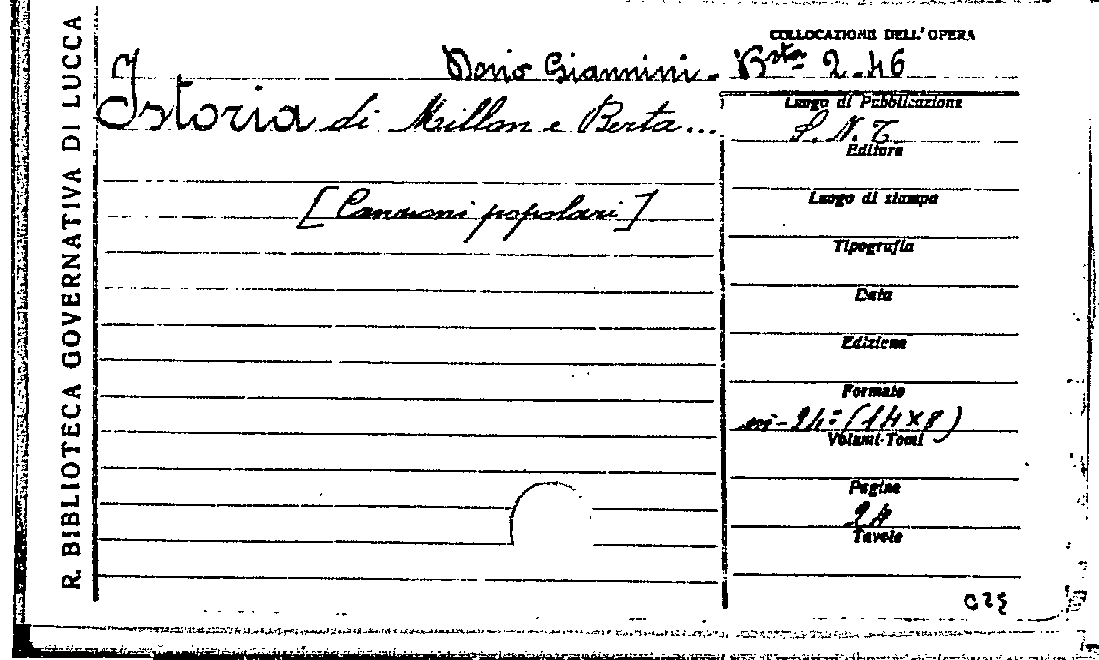 R. BIBLIOTECA GOVERNATIVA DI LUCCA
COLLOCAZIONE DELL'OPERA
Dono Giannini. Bsta 2.46
Istoria di Millon e Berta...
[Canzoni popolari]
Luogo di Pubblicazione
S. N. T.
Editore
Luogo di stampa
Tipografia
Data
Edizione
Formato
in-24° (14x8)
Volumi-Tomi
Pagine
24
Tavole